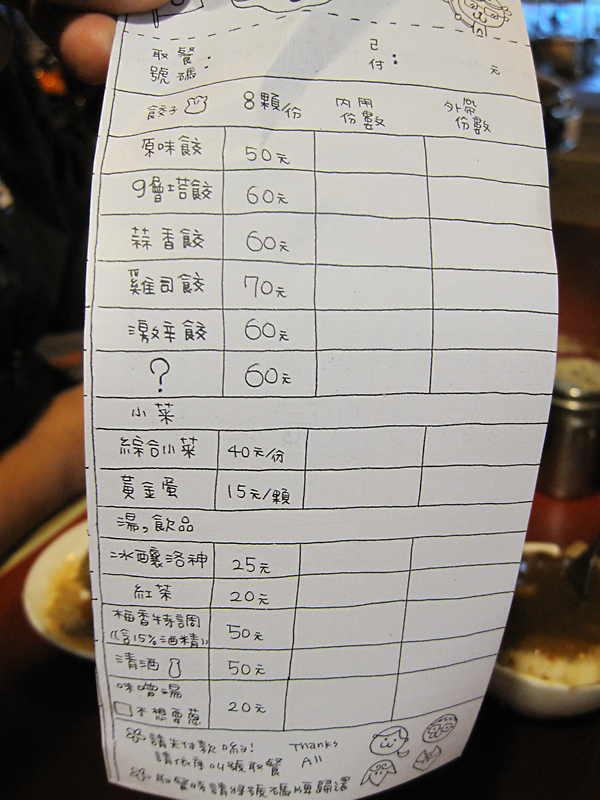 取餐號碼： 已付： 元
餃子 8顆/份 內用份數 外帶份數
原味餃 50元
9層塔餃 60元
蒜香餃 60元
雞司餃 70元
激辛餃 60元
? 60元
小菜
綜合小菜 40元/份
黃金蛋 15元/顆
湯,飲品
冰釀洛神 25元
紅茶 20元
梅香特調 50元
(含15%酒精)
清酒 50元
味噌湯 20元
不想要蔥
請先付款喲! Thanks
請依序叫號取餐 All
取餐時請將號碼牌歸還